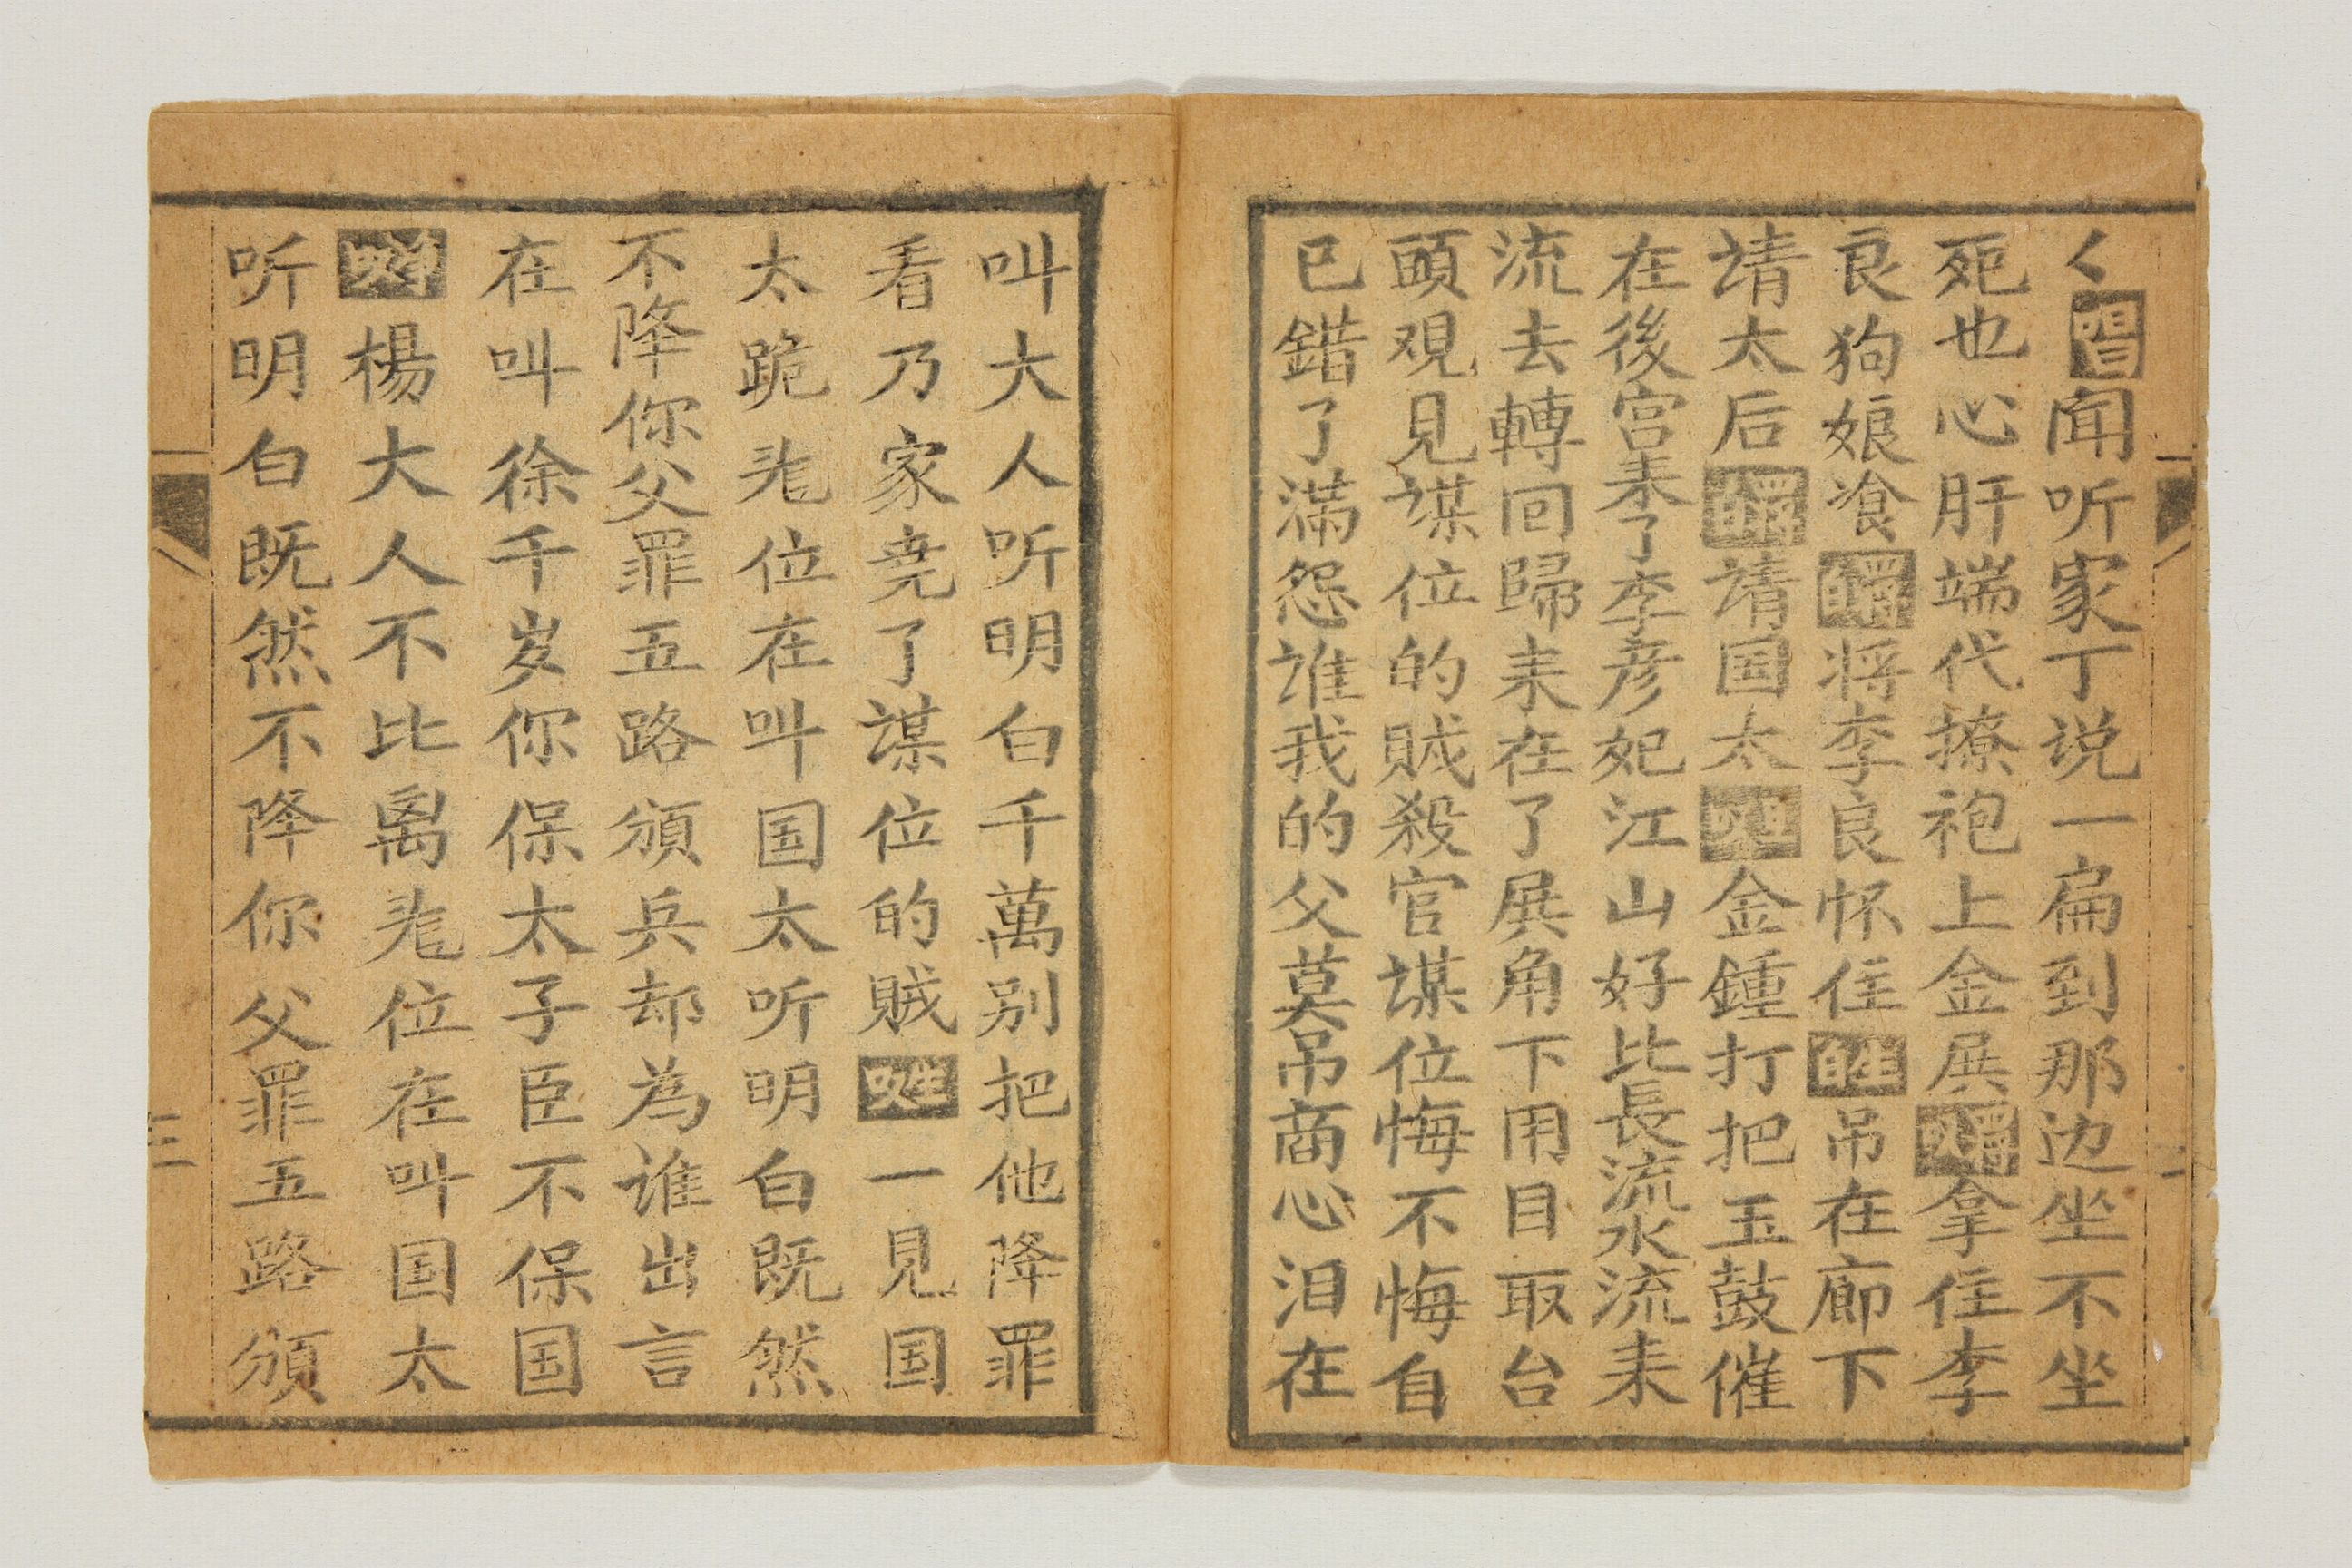 く唱闻听家丁说一扁到那边坐不坐
死也心肝端代撩袍上金展拿住李
良狗娘飡将李良怀住吊在廊下
請太后請国太金鍾打把玉鼓催
在後宫耒了李彦妃江山好比長流水流耒
流去轉回歸耒在了展角下用目取台
頭观見謀位的贼殺官謀位悔不悔自
已錯了滿怨谁我的父莫吊商心泪在
叫大人听明白千萬别把他降罪
看乃家尭了謀位的贼一見国
太跪毞位在叫国太听明白既然
不降你父罪五路頒兵却為谁出言
在叫徐千岁你保太子臣不保国
楊大人不比离毞位在叫国太
听明白既然不降你父罪五路頒